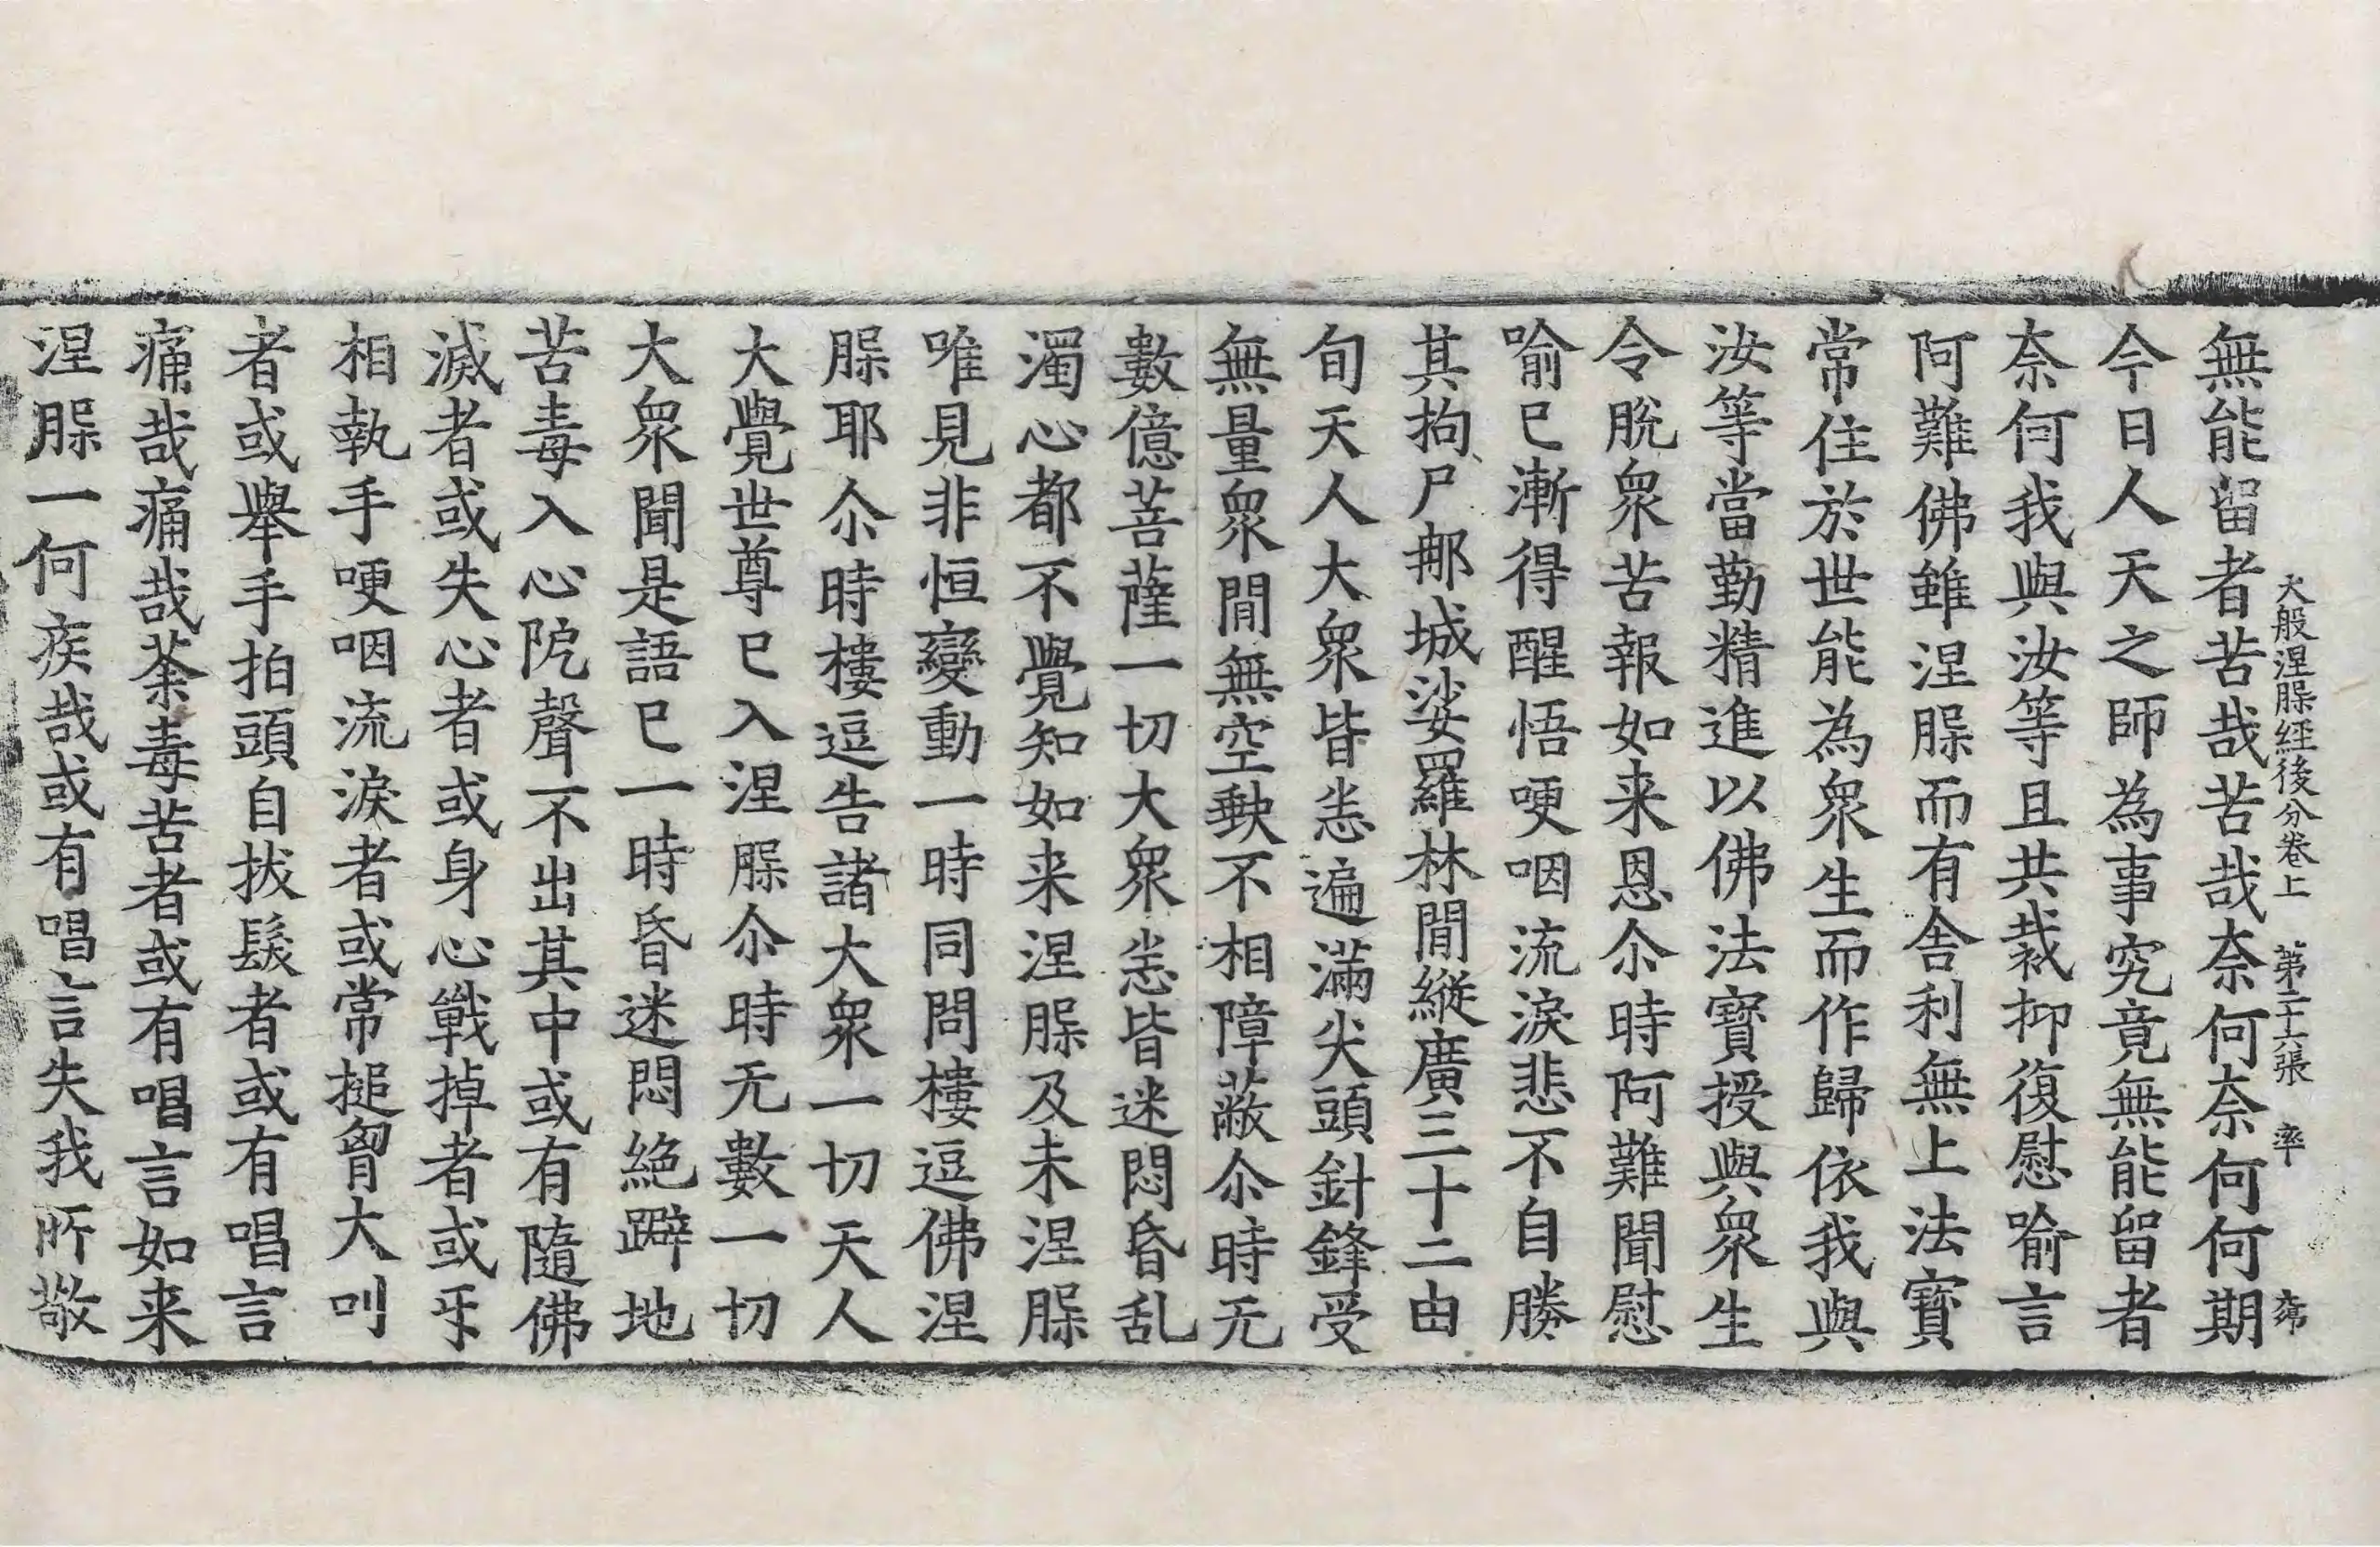 大般涅槃經後分卷上　第二十六張　率
無能留者苦哉苦哉奈何奈何何期
今日人天之師為事究竟無能留者
奈何我與汝等且共裁抑復慰喻言
阿難佛雖涅槃而有舍利無上法寶
常住於世能為衆生而作歸依我與
汝等當勤精進以佛法寶授與衆生
令脫衆苦報如来恩尒時阿難聞慰
喻已漸得醒悟哽咽流淚悲不自勝
其拘尸那城娑羅林間縱廣三十二由
旬天人大衆皆悉遍滿尖頭針鋒受
無量衆閒無空缺不相障蔽尒時无
數億菩薩一切大衆悉皆迷悶昏乱
濁心都不覺知如来涅槃及未涅槃
唯見非恒變動一時同問樓逗佛涅
槃耶尒時樓逗告諸大衆一切天人
大覺世尊已入涅槃尒時无數一切
大衆聞是語已一時昏迷悶絕躃地
苦毒入心阸聲不出其中或有隨佛
滅者或失心者或身心戰掉者或㸦
相執手哽咽流淚者或常搥胷大叫
者或舉手拍頭自拔髮者或有唱言
痛哉痛哉荼毒苦者或有唱言如来
涅槃一何疾哉或有唱言失我所敬